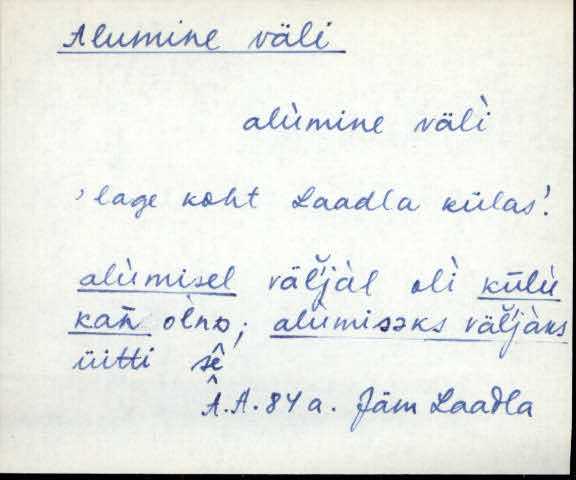 Alumine väli
alùmine väl̀i
, lage koht Laadla külas'.
alùmisel väl̆jàl ol̀i kūlù
kañ òlnᴅ; alùmisəks väl̆jàks
üitti sê
Â.A. 84 a. Jäm Laadla